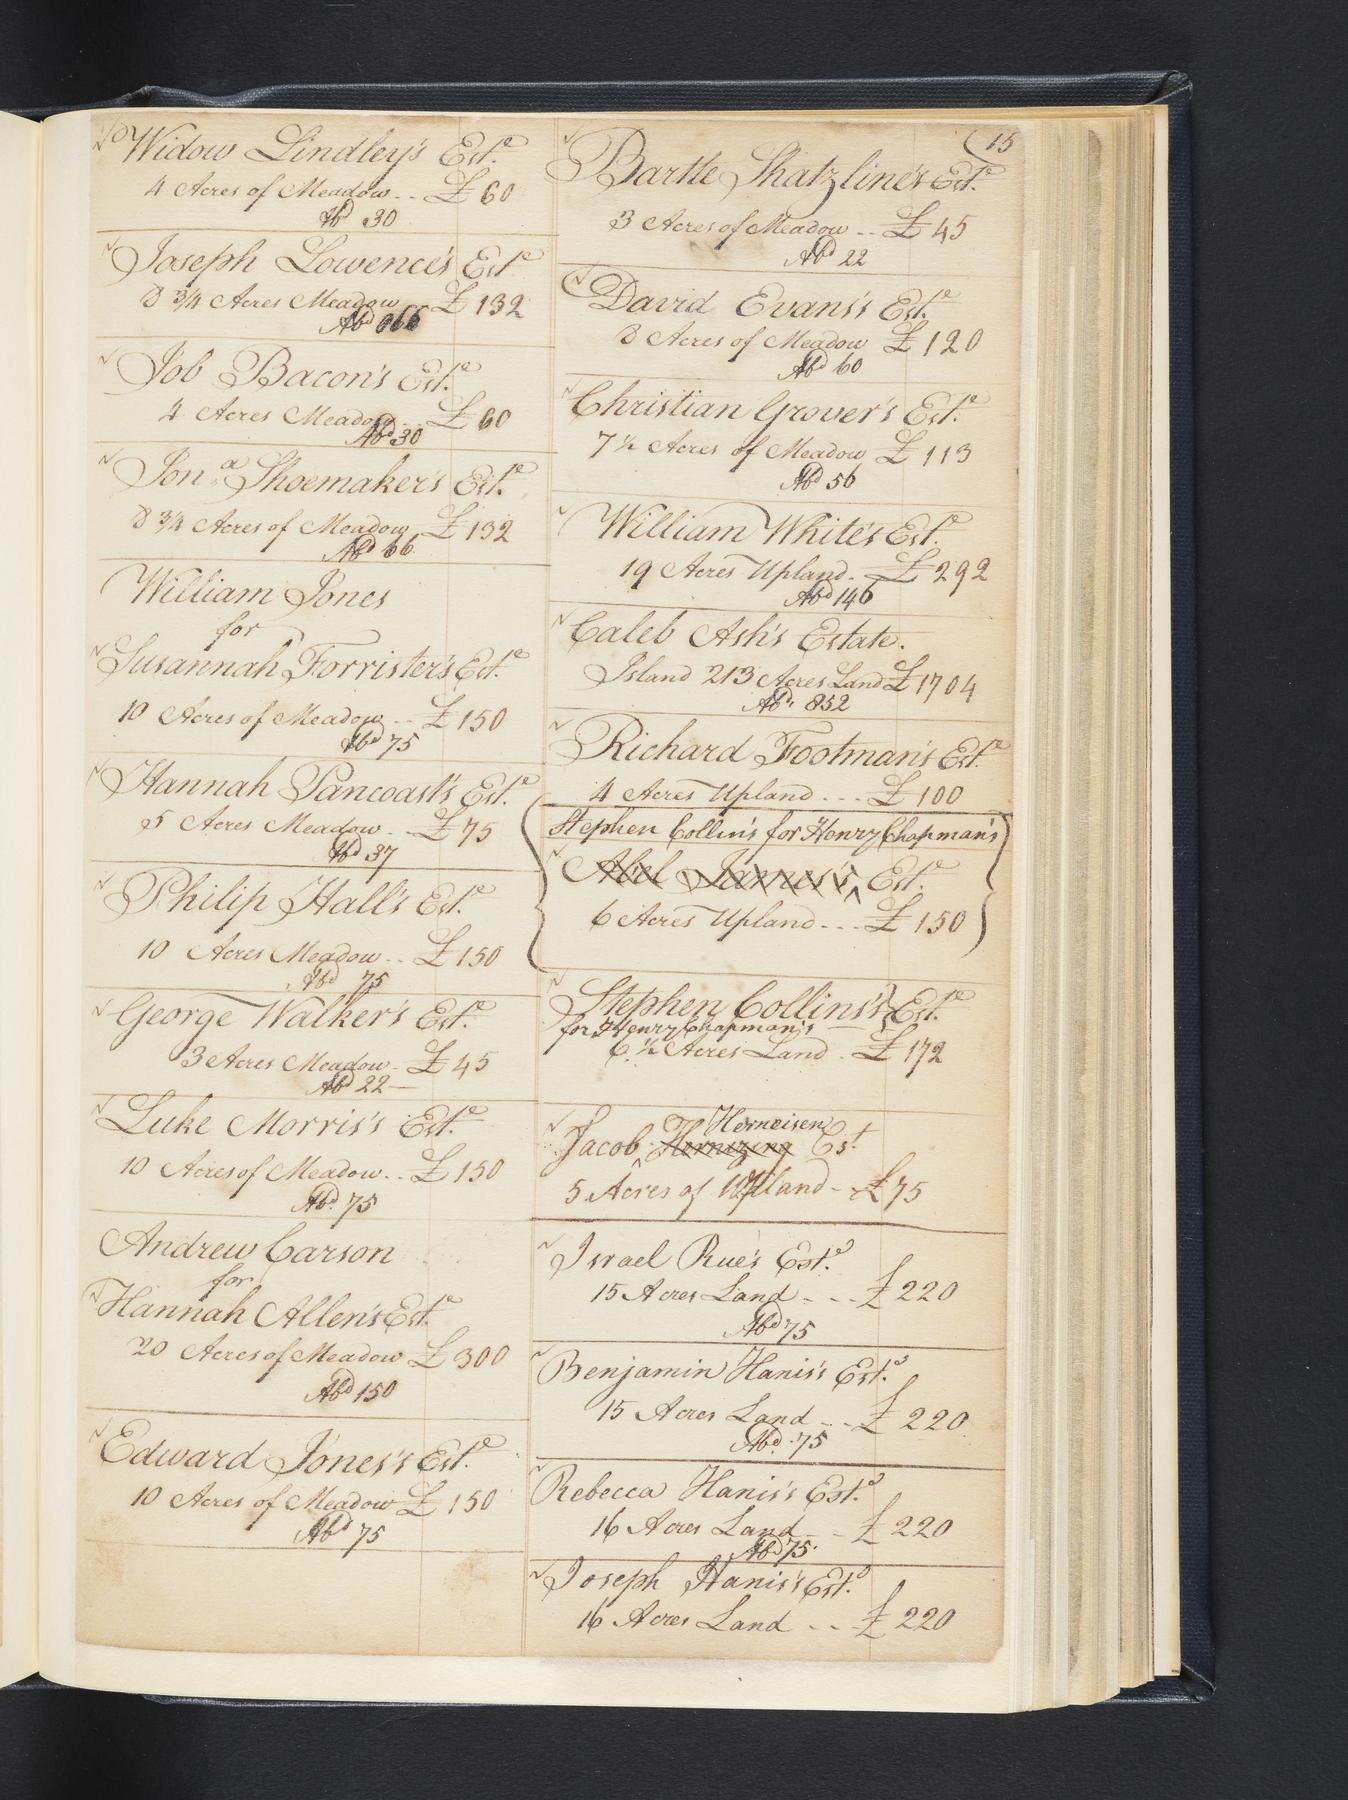 Widow Lindley's Est.e
4 Acres of Meadow .. £ 60
Ab.d 30
Joseph Lowence's Est.e
8 3/4 Acres Meadow .. £ 132
Ab.d 66
Job Bacon's Est.e
4 Acres Meadow .. £ 60
Ab.d 30
Jon.a Shoemaker's Est.e
8 3/4 Acres of Meadow .. £ 132
Ab.d 66
William Jones
for
Susannah Forrister's Est.e
10 Acres of Meadow .. £ 150
Ab.d 75
Hannah Pancoast's Est.e
5 Acres Meadow .. £ 75
Ab.d 37
Philip Hall's Est.e
10 Acres Meadow .. £ 150
Ab.d 75
George Walker's Est.e
3 Acres Meadow .. £ 45
Ab.d 22
Luke Morris's Est.e
10 Acres of Meadow .. £ 150
Ab.d 75
Andrew Carson
for
Hannah Allen's Est.e
20 Acres of Meadow £ 300
Ab.d 150
Edward Jones's Est.e
10 Acres of Meadow £ 150
Ab.d 75
15
Bartle Shatzline's Est.e
3 Acres of Meadow .. £ 45
Ab.d 22
David Evans's Est.e
8 Acres of Meadow £ 120
Ab.d 60
Christian Grover's Est.e
7 1/2 Acres of Meadow £ 113
Ab.d 56
William White's Est.e
19 Acres Upland .. £ 292
Ab.d 146
Caleb Ash's Estate.
Island 213 Acres Land £ 1704
Ab.d 852
Richard Footman's Est.e
4 Acres Upland ... £ 100
Stephen Collin's for Henry Chapman's
Abel James's Est.e
6 Acres Upland ... £ 150
Stephen Collins's Est.e
for Henry Chapman's
6 1/2 Acres Land .. £ 172
Herneisen
Jacob Hernizing Est
5 Acres of Upland .. £ 75
Israel Rue's Est.e
15 Acres Land ... £ 220
Ab.d 75
Benjamin Hanis's Est.e
15 Acres Land ... £ 220
Ab.d 75
Rebecca Hanis's Est.e
16 Acres Land .. £ 220
Ab.d 75
Joseph Hanis's Est.e
16 Acres Land ... £ 220